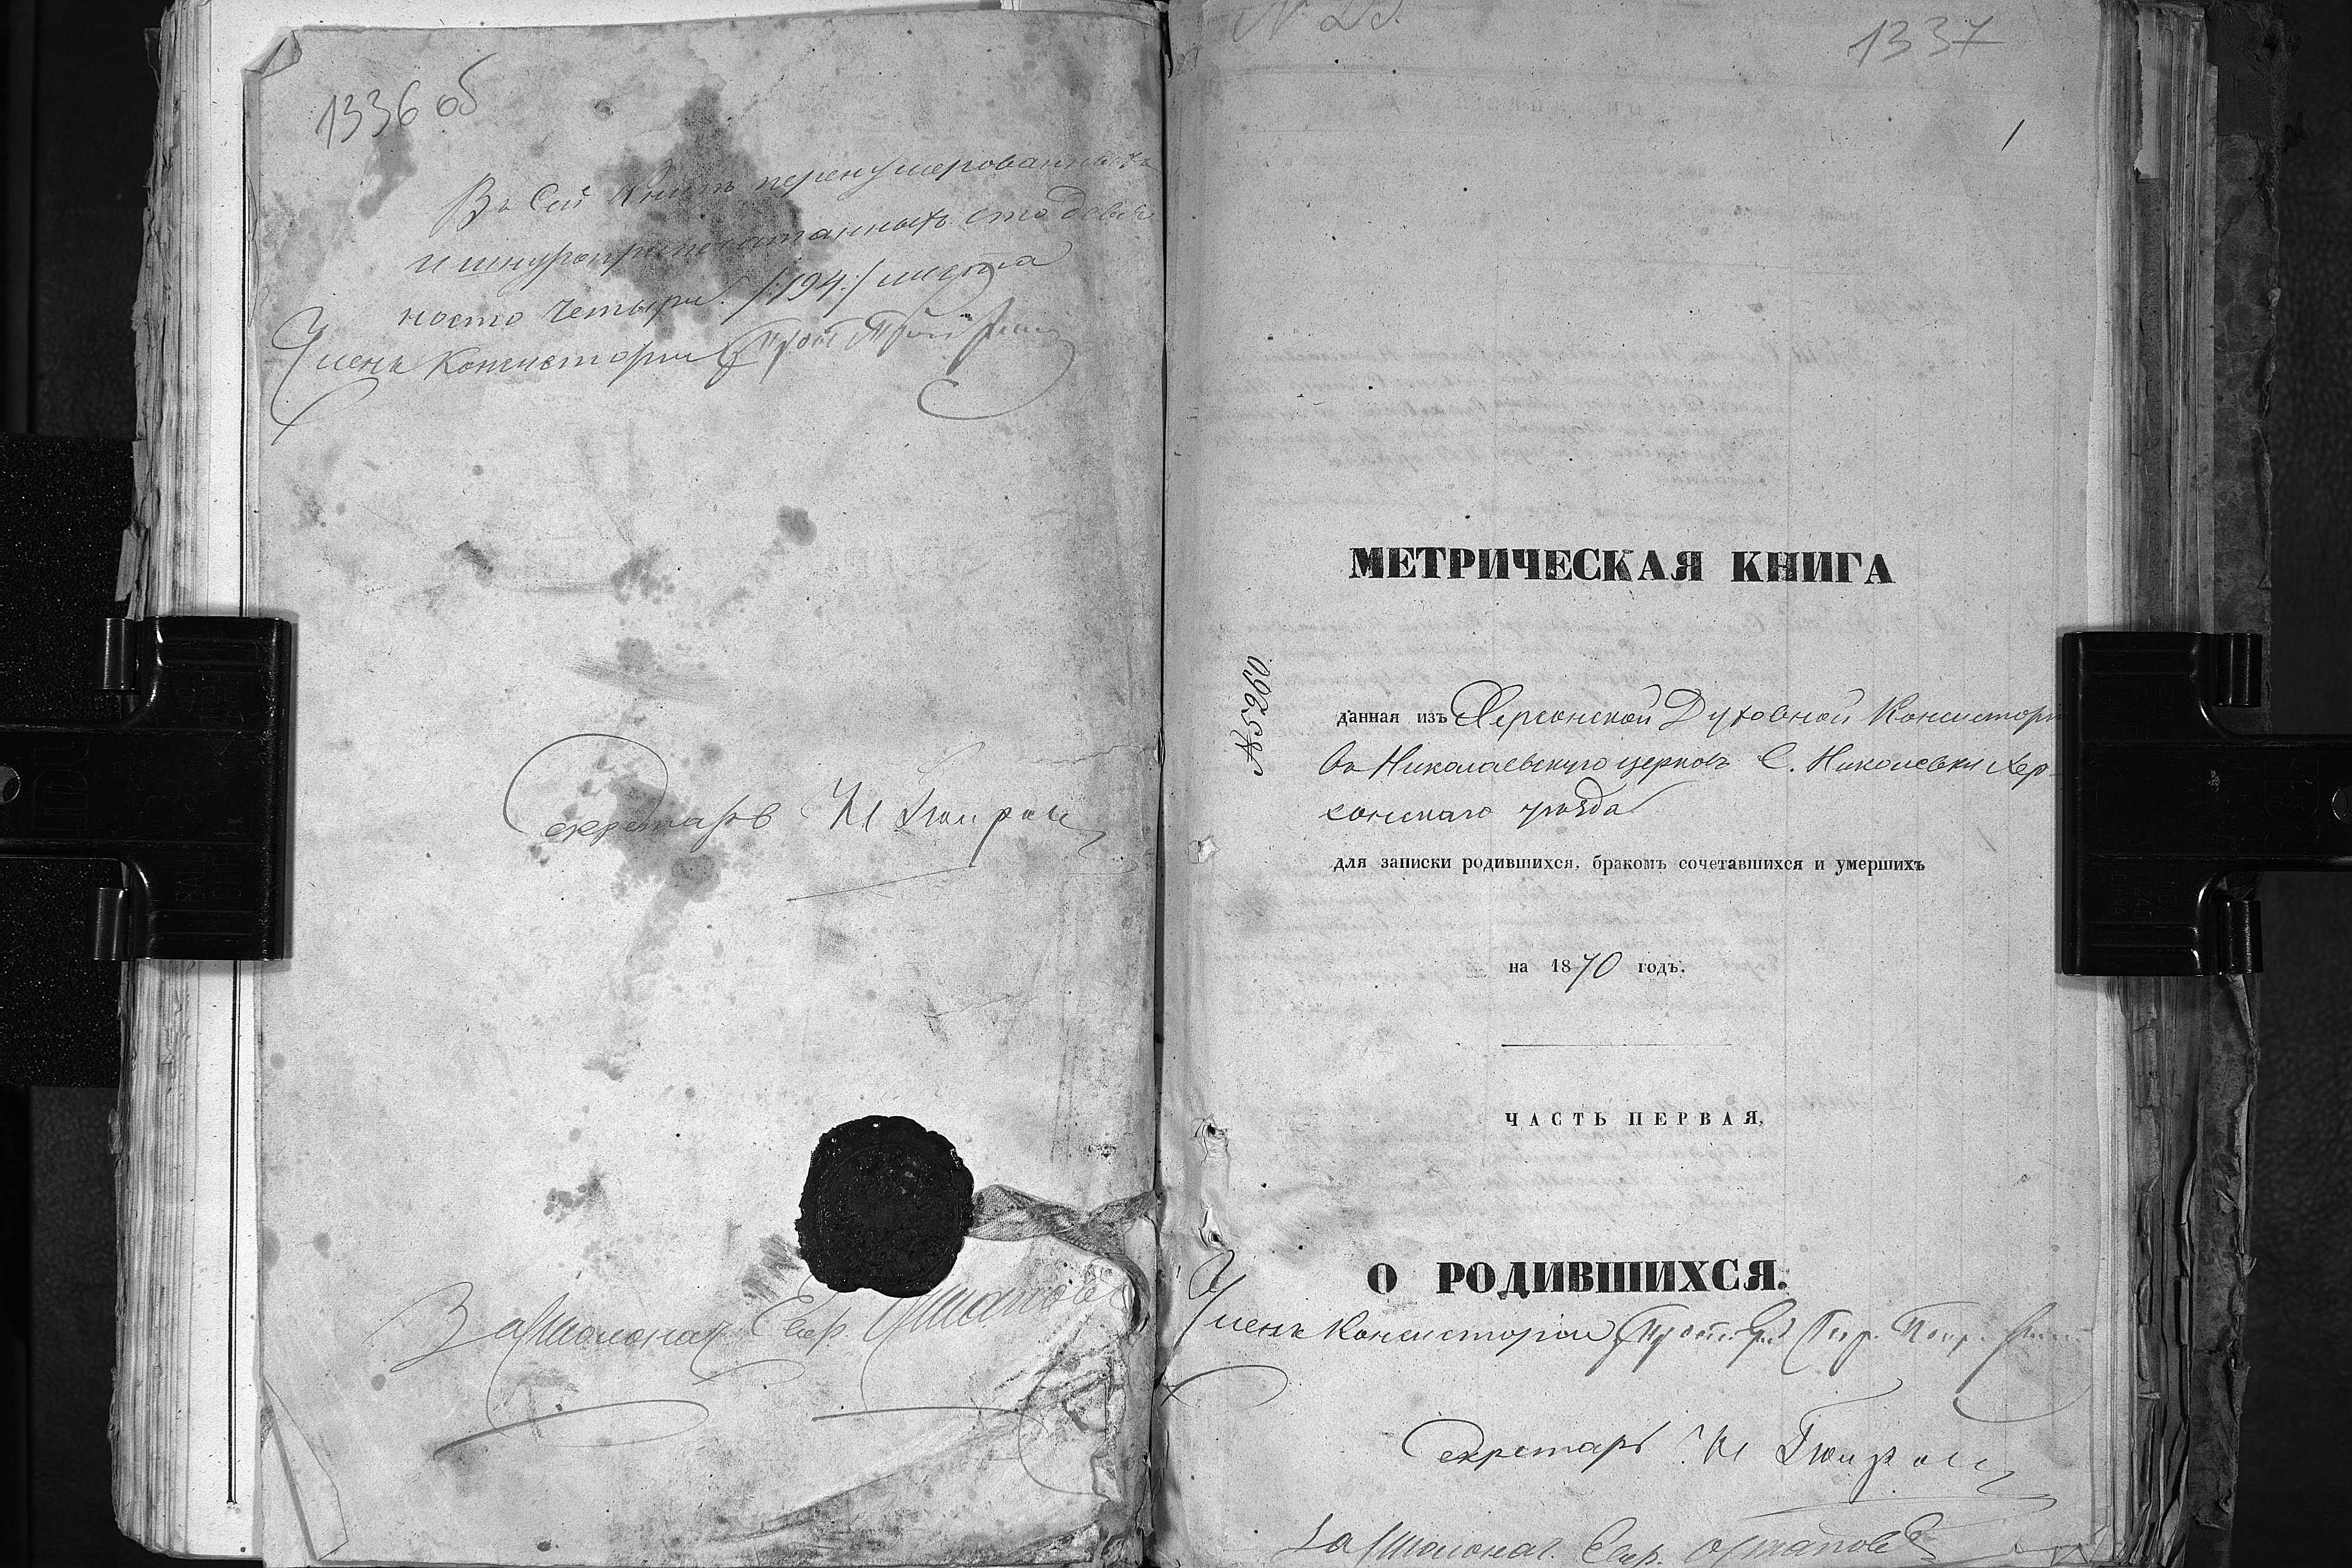 1336 об
Въ сей книгѣ перенумерованныхъ
и шнуроприпечатанныхъ сто девя
носто четыре /:194:/ листа
Членъ Консисторіи
Секретарь И
За Столонач. Секр.
1337
1
МЕТРИЧЕСКАЯ КНИГА
№ 5260.
данная изъ Херсонской Духовной Консисторіи
въ Николаевскую церковь С. Николаевки Хер-
сонскаго уѣзда
для записки родившихся, бракомъ сочетавшихся и умершихъ
на 1870 годъ.
ЧАСТЬ ПЕРВАЯ,
О РОДИВШИХСЯ.
Членъ Консисторіи
Секретарь И
За Столонач. Секр.